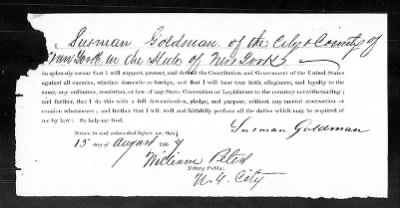 Susman Goldman of the City & County of
New York in the State of New York
do solemnly swear that I will support, protect, and defend the Constitution and Government of the United States
against all enemies, whether domestic or foreign, and that I will bear true faith, allegiance, and loyalty to the
same, any ordinance, resolution, or law of any State, Convention or Legislature to the contrary notwithstanding;
and further, that I do this with a full determination, pledge, and purpose, without any mental reservation or
evasion whatsoever; and further that I will well and faithfully perform all the duties which may be required of
me by law: So help me God.
Susman Goldman
Sworn to and subscribed before me, this
15 day of August
William Peters
Notary Public
N.Y. City